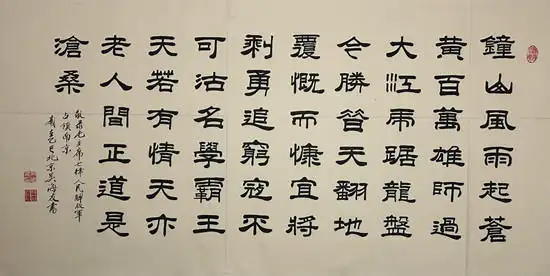 鐘山風雨起蒼
黃百萬雄師過
大江虎踞龍盤
今勝昔天翻地
覆慨而慷宜將
剩勇追窮寇不
可沽名學霸王
天若有情天亦
老人間正道是
滄桑
敬录毛主席七律人民解放軍
占領南京
北京吴海友書